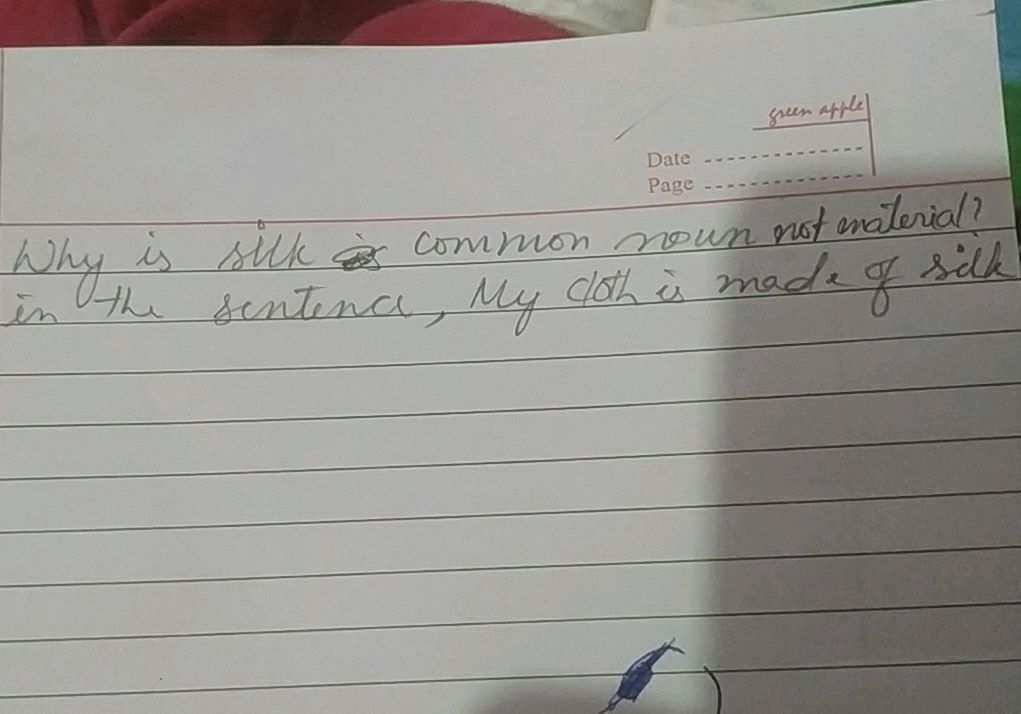 green apple
Date
Page
Why is silk common noun not material?
in the sentence, My cloth is made of silk